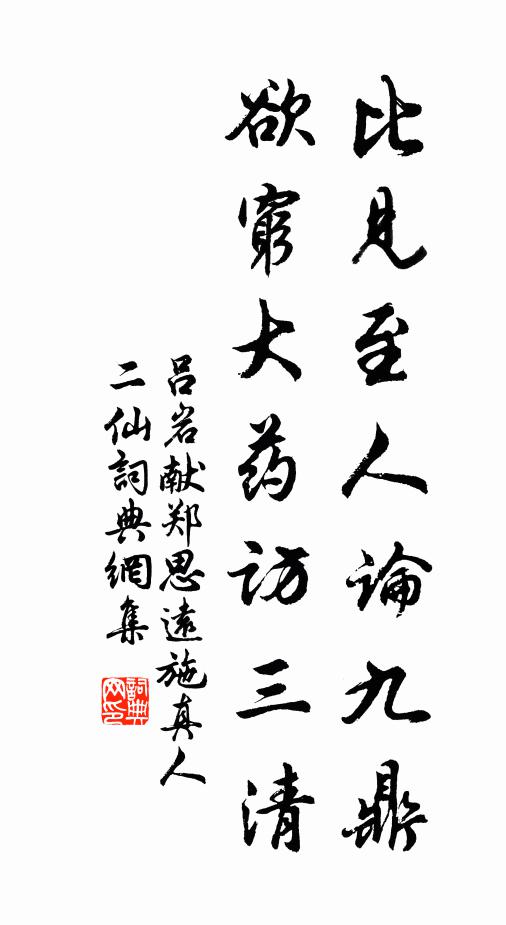 比見至人論九鼎
欲窮大药访三清
吕岩献郑思遠施真人
二仙詞典網集
詞典
网印